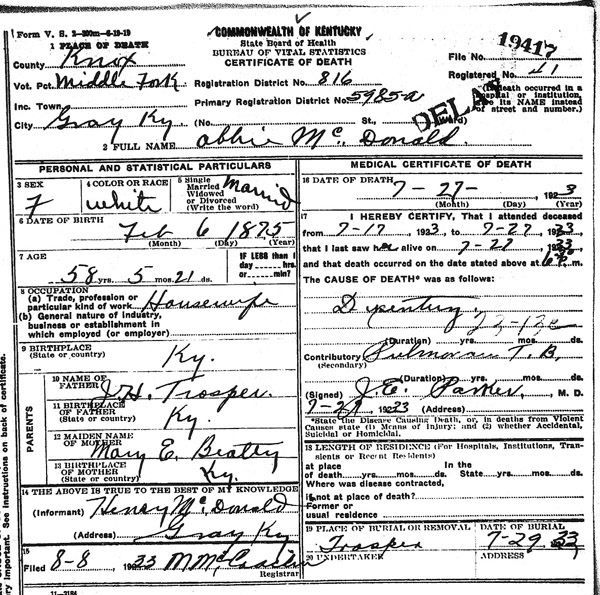 Form V. S. 2-300m-6-19-19
COMMONWEALTH OF KENTUCKY
State Board of Health
BUREAU OF VITAL STATISTICS
CERTIFICATE OF DEATH
1 PLACE OF DEATH
County Knox
File No. 19417
Vot. Pct. Middle Fork
Registration District No. 816
Registered No. 41
Inc. Town
Primary Registration District No. 5985-a
DELAY
(If death occurred in a hospital or institution, give its NAME instead of street and number.)
City Gray Ky (No. St., Ward)
2 FULL NAME Abbie Mc Donald
PERSONAL AND STATISTICAL PARTICULARS
3 SEX F
4 COLOR OR RACE White
5 Single Married Widowed or Divorced (Write the word) Married
6 DATE OF BIRTH
Feb 6 1875
(Month) (Day) (Year)
7 AGE
58 yrs. 5 mos. 21 ds.
IF LESS than 1 day hrs. or min.?
8 OCCUPATION
(a) Trade, profession or particular kind of work Housewife
(b) General nature of industry, business or establishment in which employed (or employer)
9 BIRTHPLACE
(State or country) Ky.
PARENTS
10 NAME OF FATHER J.H. Trosper
11 BIRTHPLACE OF FATHER
(State or country) Ky.
12 MAIDEN NAME OF MOTHER Mary E. Beatty
13 BIRTHPLACE OF MOTHER
(State or country) Ky.
14 THE ABOVE IS TRUE TO THE BEST OF MY KNOWLEDGE
(Informant) Henry Mc Donald
(Address) Gray Ky
15
Filed 8-8 1933
Registrar
11-3184
MEDICAL CERTIFICATE OF DEATH
16 DATE OF DEATH
7-27- 1923
(Month) (Day) (Year)
17 I HEREBY CERTIFY, That I attended deceased
from 7-17 1923, to 7-27, 1933
that I last saw her alive on 7-27 1933
and that death occurred on the date stated above at 6 P. m.
The CAUSE OF DEATH* was as follows:
Dysentery
(Duration) yrs. mos. ds.
Contributory Pulmonary T.B.
(Secondary)
(Duration) yrs. mos. ds.
(Signed) J.E. Parker, M. D.
1933 (Address)
*State the Disease Causing Death, or, in deaths from Violent Causes state (1) Means of Injury; and (2) whether Accidental, Suicidal or Homicidal.
18 LENGTH OF RESIDENCE (For Hospitals, Institutions, Transients or Recent Residents)
at place of death yrs. mos. ds. In the State yrs. mos. ds.
Where was disease contracted,
if not at place of death?
Former or usual residence
19 PLACE OF BURIAL OR REMOVAL
Trosper
DATE OF BURIAL
7-29 33
20 UNDERTAKER
ADDRESS
See instructions on back of certificate.